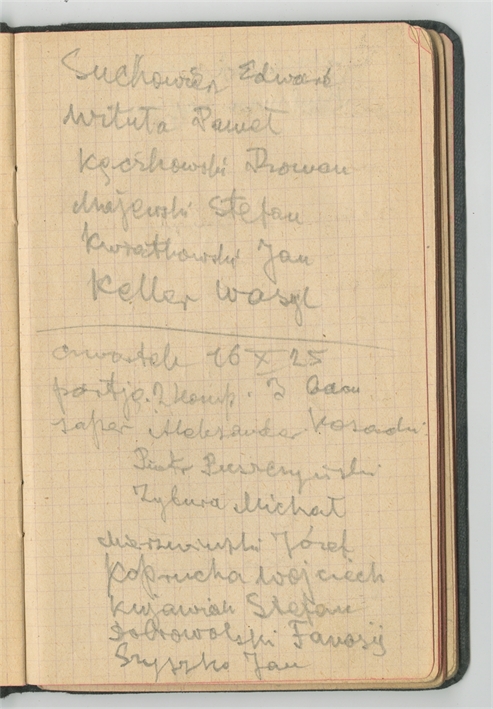 Suchowier Edward
Wituła Paweł
Kęczkowski Roman
Majewski Stefan
Kwiatkowski Jan
Keller Wasyl
czwartek 16 X 25
partja. 2 komp. 3 baon
saper Aleksander Kosacki
Piotr Pieszczyński
Zybura Michał
Mierzwiński Józef
Koprucha Wojciech
Kujawiak Stefan
Dobrowolski
Szyszko Jan